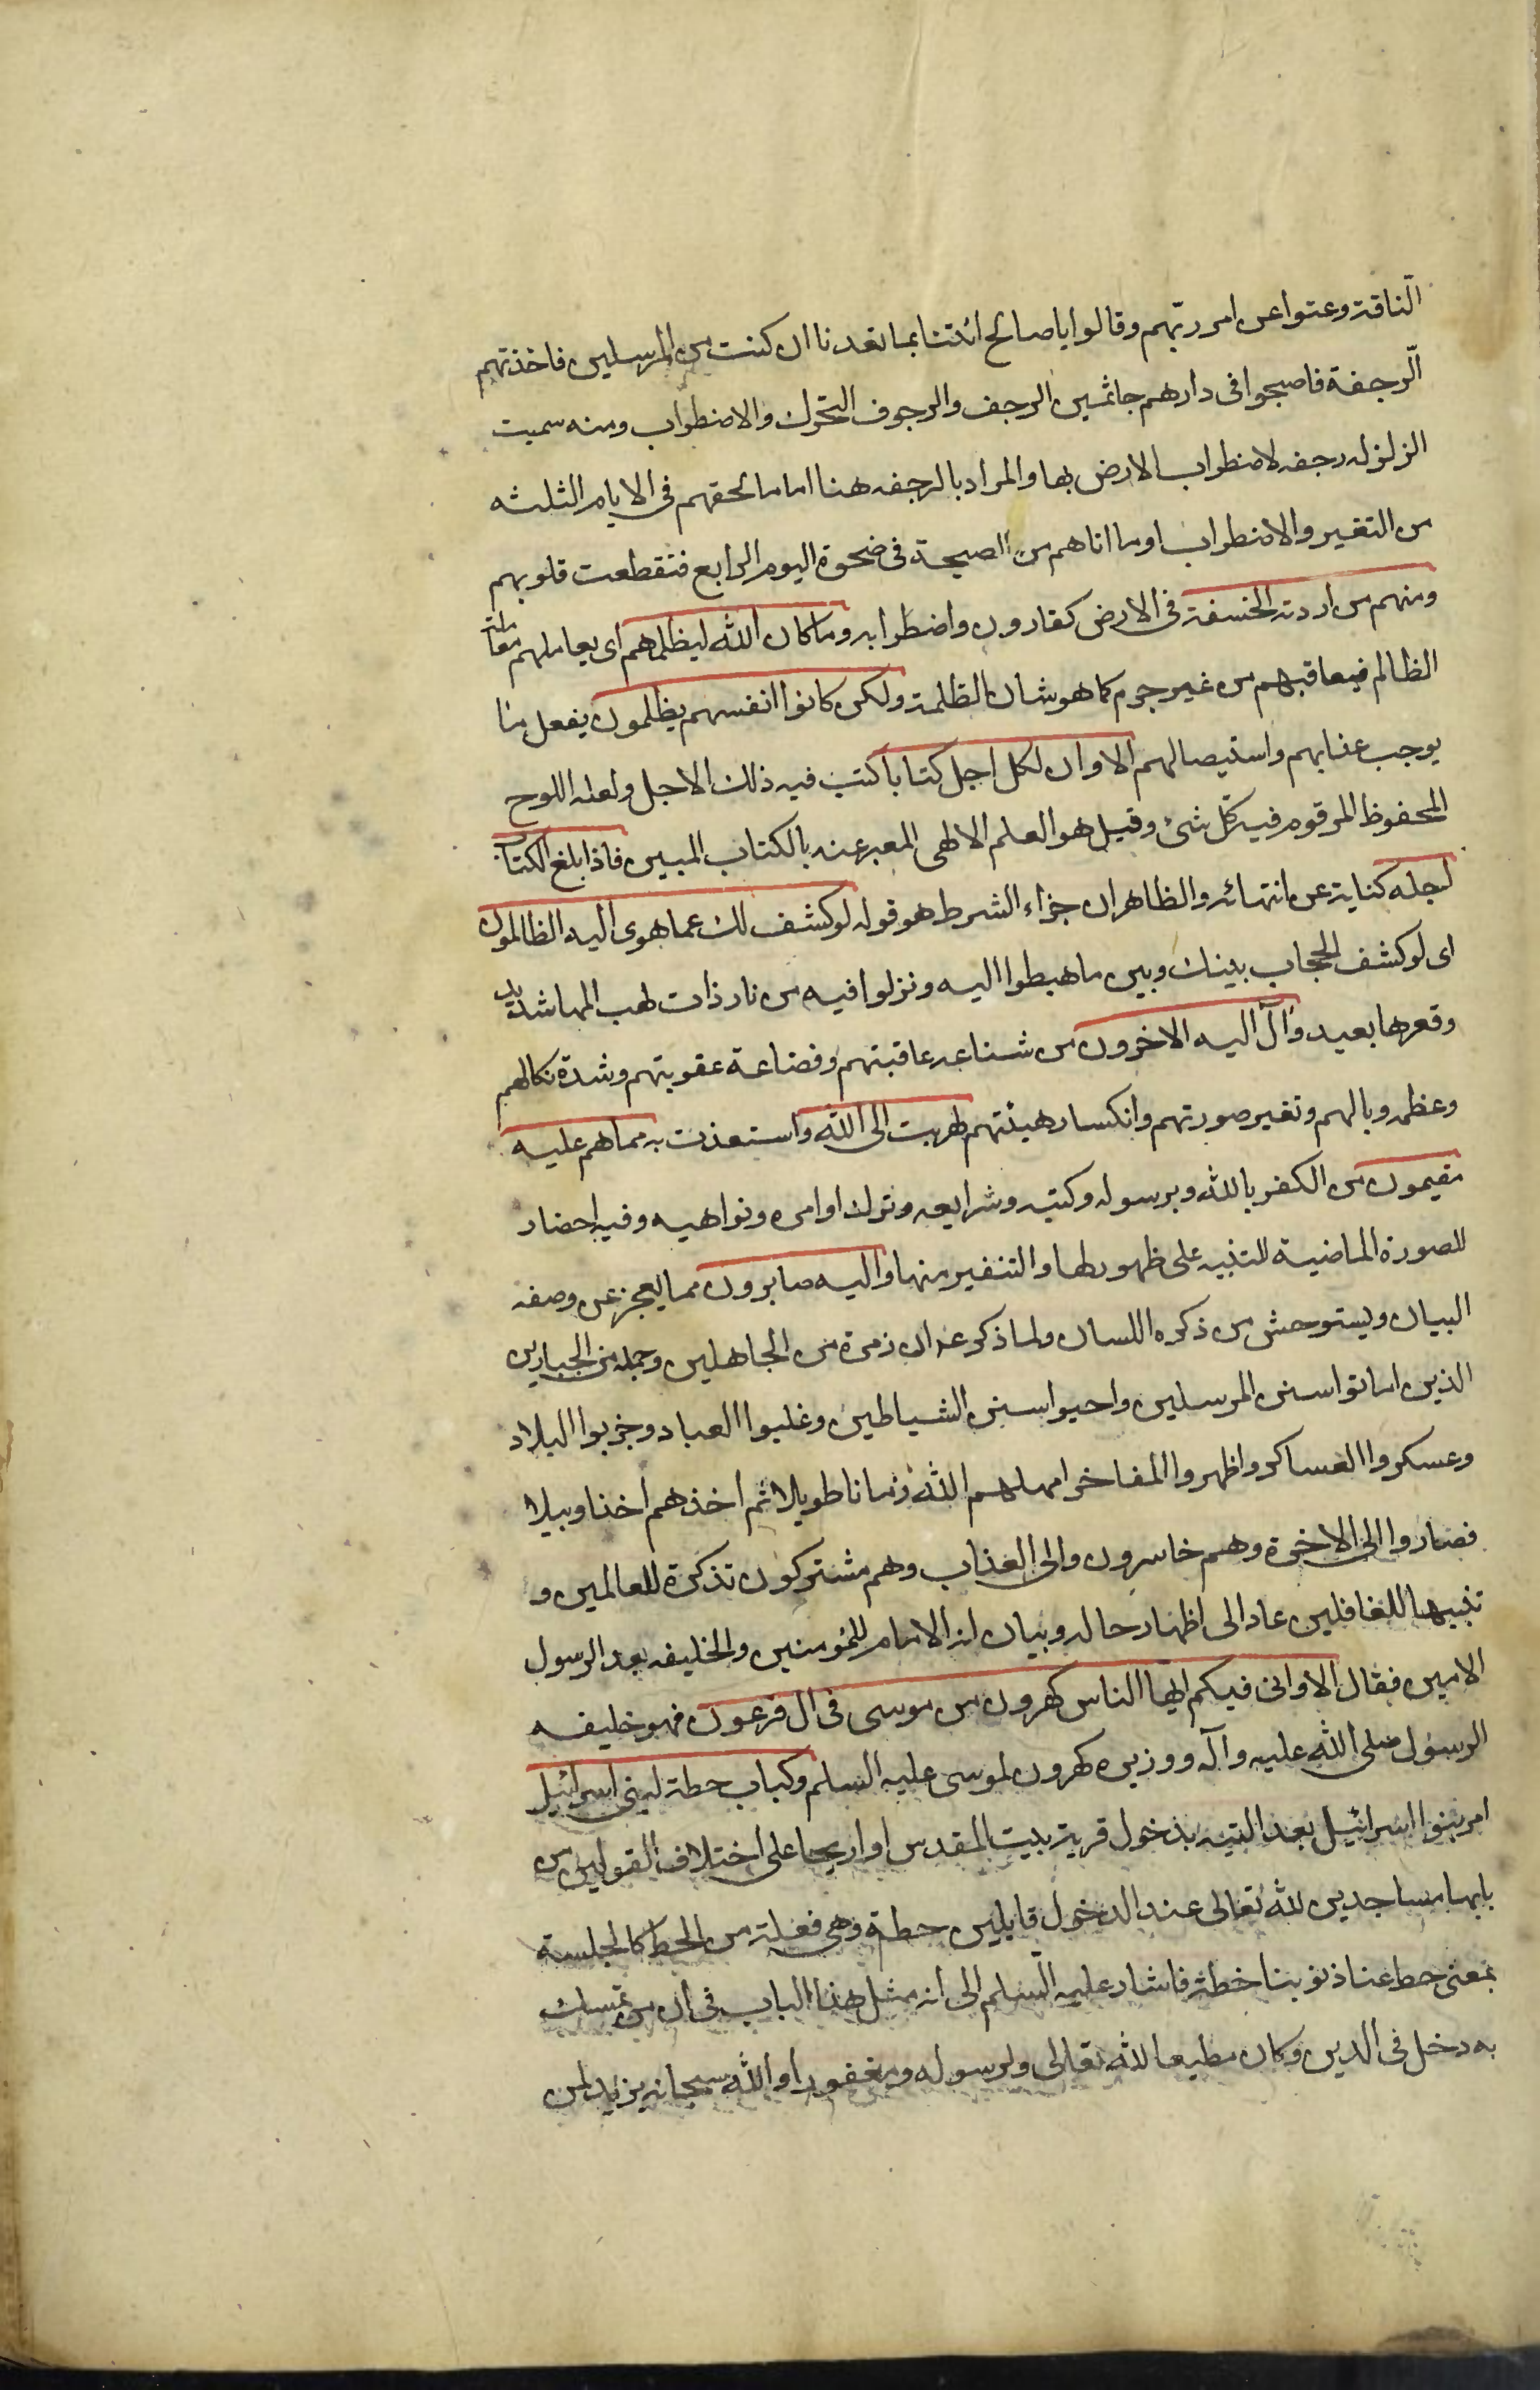 الّناقة وعتوا عن امر ربّهم وقالوا يا صالح ائتنا بما تعدنا ان كنت من المرسلين فاخذتهم
الّرجفة فاصبحوا فى دارهم جاثمين الرجف والرجوف التحرك والاضطراب ومنه سميت
الزلزله رجفه لاضطراب الارض بها والمراد بالرجفه هنا اما ما لحقهم فى الايام الثلثه
من التغير والاضطراب او ما اتاهم من الصيحة فى ضحوة اليوم الرابع فتقطعت قلوبهم
ومنهم من اردته الخسفة فى الارض كقارون واضطرابه وما كان الله ليظلمهم اى يعاملهم معاملة
الظالم فيعاقبهم من غير جرم كما هو شان الظلمة ولكن كانوا انفسهم يظلمون بفعل ما
يوجب عذابهم واستيصالهم الا وان لكل اجل كتابا كتب فيه ذلك الاجل ولعله اللوح
المحفوظ المرقوم فيه كّل شئ وقيل هو العلم الالهى المعبر عنه بالكتاب المبين فاذا بلغ الكتاب
اجله كناية عن انتهائه والظاهر ان جزاء الشرط هو قوله لو كشف لك عما هوى اليه الظالمون
اى لو كشف الحجاب بينك وبين ما هبطوا اليه ونزلوا فيه من نار ذات لهب لهبها شديد
وقعرها بعيد وآل اليه الاخرون من شناعه عاقبتهم وفضاعة عقوبتهم وشدة نكالهم
وعظم وبالهم وتغير صورتهم وانكسار هيئتهم لهربت الى الله واستعذت به مما هم عليه
مقيمون من الكفر بالله وبرسوله وكتبه وشرايعه وترك اوامره ونواهيه وفيه احضار
للصورة الماضية للتنبيه على ظهورها والتنفير منها واليه صابرون مما يعجز عن وصفه
البيان ويستوحش من ذكره اللسان ولما ذكر عه ان زمرة من الجاهلين وجمله من الجبارين
الذين اماتوا سنن المرسلين واحيوا سنن الشياطين وغلبوا العباد وخربوا البلاد
وعسكروا العساكر واظهروا المفاخر امهلهم الله زمانا طويلا ثم اخذهم اخذا وبيلا
فصاروا الى الاخرة وهم خاسرون والى العذاب وهم مشتركون تذكرة للعالمين و
تنبيها للغافلين عاد الى اظهار حاله وبيان انه الامام للمؤمنين والخليفه بعد الرسول
الامين فقال الا وانى فيكم ايها الناس كهرون من موسى فى ال فرعون فهو خليفه
الرسول صلى الله عليه وآله ووزيره كهرون لموسى عليه السلم وكباب حطة لبنى اسرائيل
امر بنوا اسرائيل بعد التيه بدخول قرية بيت المقدس او اريحا على اختلاف القولين من
بابها ساجدين لله تعالى عند الدخول قايلين حطة وهى فعلة من الحط كالجلسة
بمعنى حط عنا ذنوبنا حطة فاشار عليه السّلم الى انه مثل هذا الباب فى ان من تمسك
به دخل فى الدين وكان مطيعا لله تعالى ولرسوله ومغفورا والله سبحانه يزيد لمن